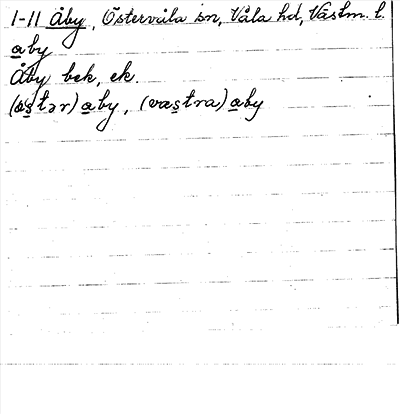 1-11 Åby, Östervåla sn, Våla hd, Västm. l.
aby
Åby bek, ek.
(østər) aby, (vastra) aby